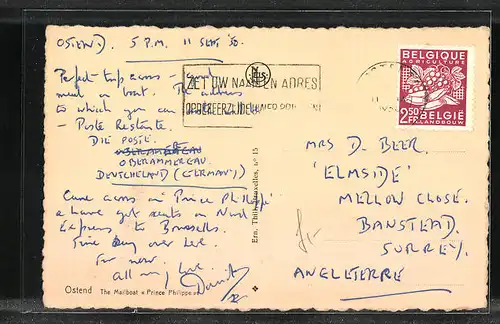 OSTEND. 5 P.M. 11 SEPT '50.
Perfect trip across - good
meal on boat. The address
to which you can write
- Poste Restante.
DIE POSTE.
OBERAMMERGAU
OBERAMMERGAU.
DEUTCHELAND (GERMANY)
Came across on 'Prince Philippe'
& have got seats on Nord
Express to Brussels.
Fine day over here.
For now.
all my love
David
Ostend The Mailboat « Prince Philippe »
Ern. Thill, Bruxelles, N° 15
ZET UW NAAM EN ADRES
OP DE KEERZIJDE UWER
BELGIQUE
AGRICULTURE
2.50
FR.
BELGIË
LANDBOUW
MRS D. BEER.
'ELMSIDE'
MELLOW CLOSE.
BANSTEAD.
SURREY.
ANGLETERRE